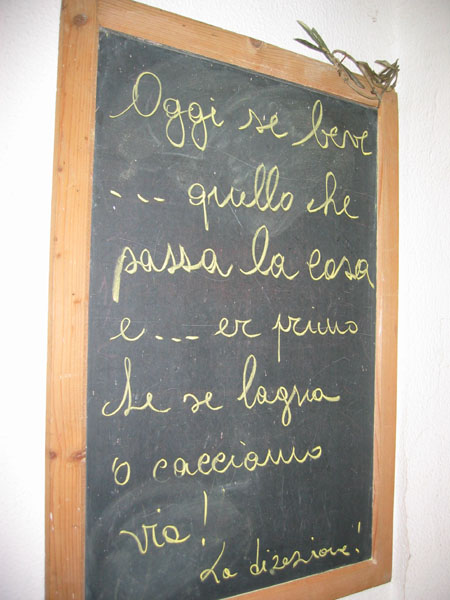 Oggi se beve
... quello che
passa la casa
e... er primo
che se lagna
'o cacciamo
via!
La direzione!